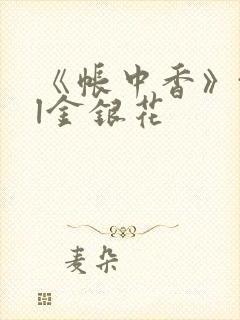 《帐中香》
|金银花
麦朵